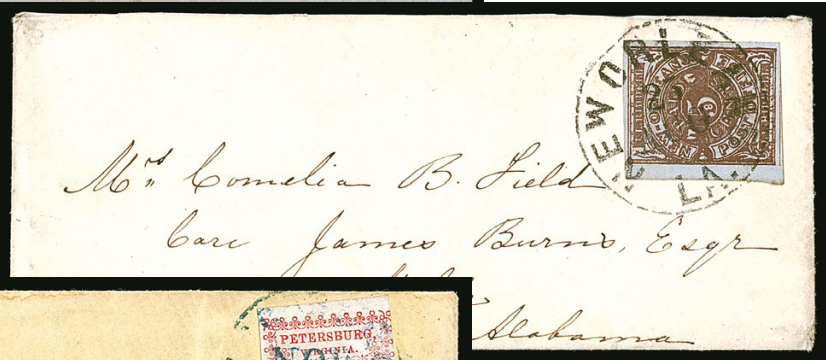 NEW ORLE
LA.
NEW-ORLEANS
POST OFFICE
5
Mrs Cornelia B. Field
Care James Burns, Esqr
Alabama
PETERSBURG,
VIRGINIA.